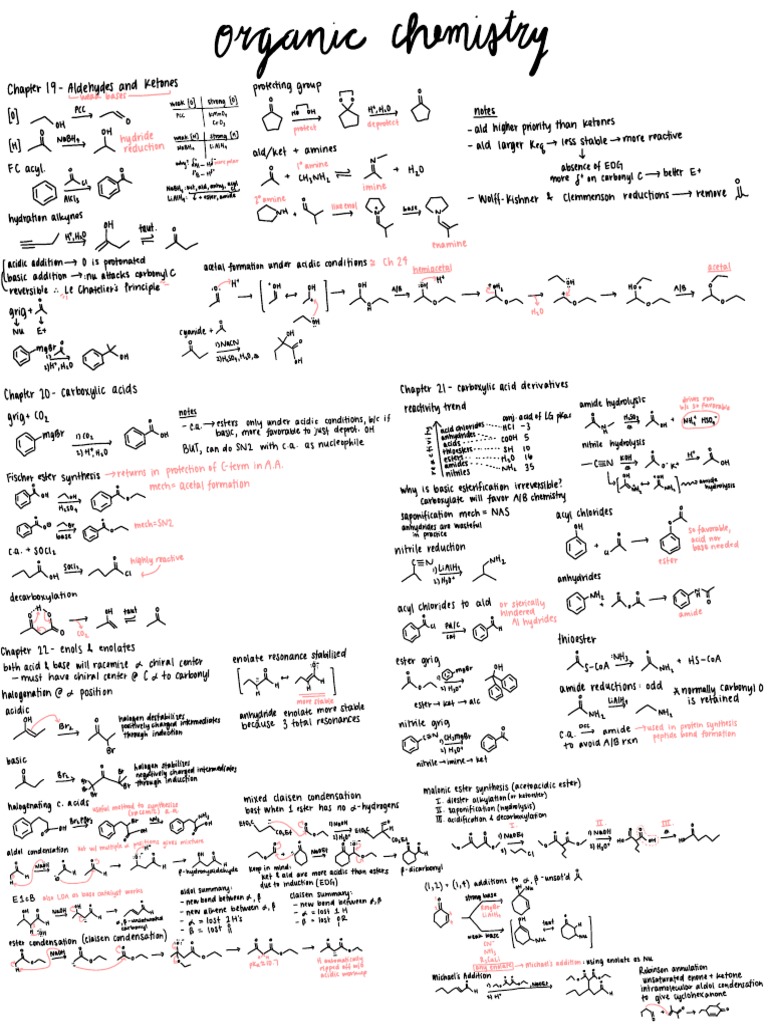 organic chemistry
Chapter 19 - Aldehydes and Ketones
weak bases
[O]
OH
PCC
O
weak [O] | strong [O]
PCC | KMnO₄
CrO₃
[H]
NaBH₄
OH
hydride
reduction
weak [H] | strong [H]
NaBH₄ | LiAlH₄
FC acyl.
Cl
AlCl₃
hydration alkynes
H⁺, H₂O
OH
taut.
acidic addition → O is protonated
basic addition → :nu attacks carbonyl C
reversible ∴ Le Chatelier's Principle
grig +
Nu E+
mgBr
1)
2) H⁺, H₂O
OH
protecting group
HO OH
protect
H⁺, H₂O
deprotect
ald/ket + amines
1° amine
+ CH₃NH₂ ⇌
imine
+ H₂O
2° amine
NH
+
like enol
base
enamine
notes
- ald higher priority than ketones
- ald larger Keq → less stable → more reactive
absence of EDG
more δ⁺ on carbonyl C → better E+
- Wolff-Kishner & Clemmenson reductions → remove
acetal formation under acidic conditions
Ch 29
H⁺
OH
hemiacetal
A/B
H₂O
acetal
cyanide +
1) NaCN
2) H₂SO₄, H₂O, Δ
Chapter 20 - carboxylic acids
grig + CO₂
mgBr
1) CO₂
2) H⁺, H₂O
OH
notes
- c.a. → esters only under acidic conditions, b/c if
basic, more favorable to just deprot. OH
BUT, can do SN2 with c.a. as nucleophile
Fischer ester synthesis → returns in protection of C-term in A.A.
mech = acetal formation
OH
H₂SO₄
Br
base
mech = SN2
c.a. + SOCl₂
OH
SOCl₂
Cl
highly reactive
decarboxylation
CO₂
taut
Chapter 21 - carboxylic acid derivatives
reactivity trend
conj. acid of LG pKas
reactivity
acid chlorides HCl -3
anhydrides
acids COOH 5
thioesters SH 10
esters H₂O 16
amides NH₃ 35
nitriles
why is basic esterification irreversible?
carboxylate will favor A/B chemistry
saponification mech = NAS
anhydrides are wasteful
in practice
nitrile reduction
C≡N
1) LiAlH₄
2) H₃O⁺
NH₂
acyl chlorides to ald
or sterically
hindered
Al hydrides
Cl
Pd/C
H
ester grig
mgBr
2) H₃O⁺
OH
ester → ket → alc
nitrile grig
C≡N
1) CH₃mgBr
2) H₃O⁺
nitrile → imine → ket
amide hydrolysis
H₂SO₄
H₂O
OH
+ NH₄⁺ HSO₄⁻
drives rxn
b/c so favorable
nitrile hydrolysis
C≡N
KOH
H₂O
O⁻ K⁺
H⁺
OH
amide
hydrolysis
acyl chlorides
OH
+ Cl
ester
so favorable,
acid nor
base needed
anhydrides
NH₂
+
amide
thioester
S-CoA
:NH₃
NH₂
+ HS-CoA
amide reductions: odd
NH₂
LiAlH₄
NH₂
* normally carbonyl O
is retained
c.a. DCC → amide → used in protein synthesis
to avoid A/B rxn
peptide bond formation
Chapter 22 - enols & enolates
both acid & base will racemize α chiral center
- must have chiral center @ C α to carbonyl
halogenation @ α position
acidic
OH
Br₂
Br
halogen destabilizes
positively charged intermediates
through induction
basic
Br₂
halogen stabilizes
negatively charged intermediates
through induction
enolate resonance stabilized
more stable
anhydride enolate more stable
because 3 total resonances
halogenating c. acids
useful method to synthesize
OH
Br₂, PBr₃
NH₃
aldol condensation
not w/ multiple α protons gives mixture
H
NaOH
β-hydroxyaldehyde
E1cB
also LDA as base catalyst works
NaOH
α, β-unsaturated
carbonyl
aldol summary:
- new bond between α, β
- new alkene between α, β
- α = lost 2 H's
- β = lost O
claisen summary:
- new bond between α, β
- α = lost 1 H
- β = lost OR
ester condensation (claisen condensation)
pKa = 10.7
H automatically
ripped off w/o
acidic workup
mixed claisen condensation
best when 1 ester has no α-hydrogens
EtO₂C
CO₂Et
1) NaOEt
2) H₃O⁺
NaOEt
H₃O⁺
β-dicarbonyl
keep in mind:
ket & ald are more acidic than esters
due to induction (EDG)
malonic ester synthesis (acetoacidic ester)
I. diester alkylation (or ketoester)
II. saponification (hydrolysis)
III. acidification & decarboxylation
I.
1) NaOEt
2) Cl
II.
1) NaOH
2) H₃O⁺
III.
Δ
(1,2) + (1,4) additions to α, β-unsat'd
strong base
RmgBr
LiAlH₄
weak base
CN⁻
NH₃
R₂CuLi
any enolate → Michael's addition: using enolate as Nu
taut
Michael's Addition
NaOEt
2) H⁺
Robinson annulation
unsaturated enone + ketone
intramolecular aldol condensation
to give cyclohexanone